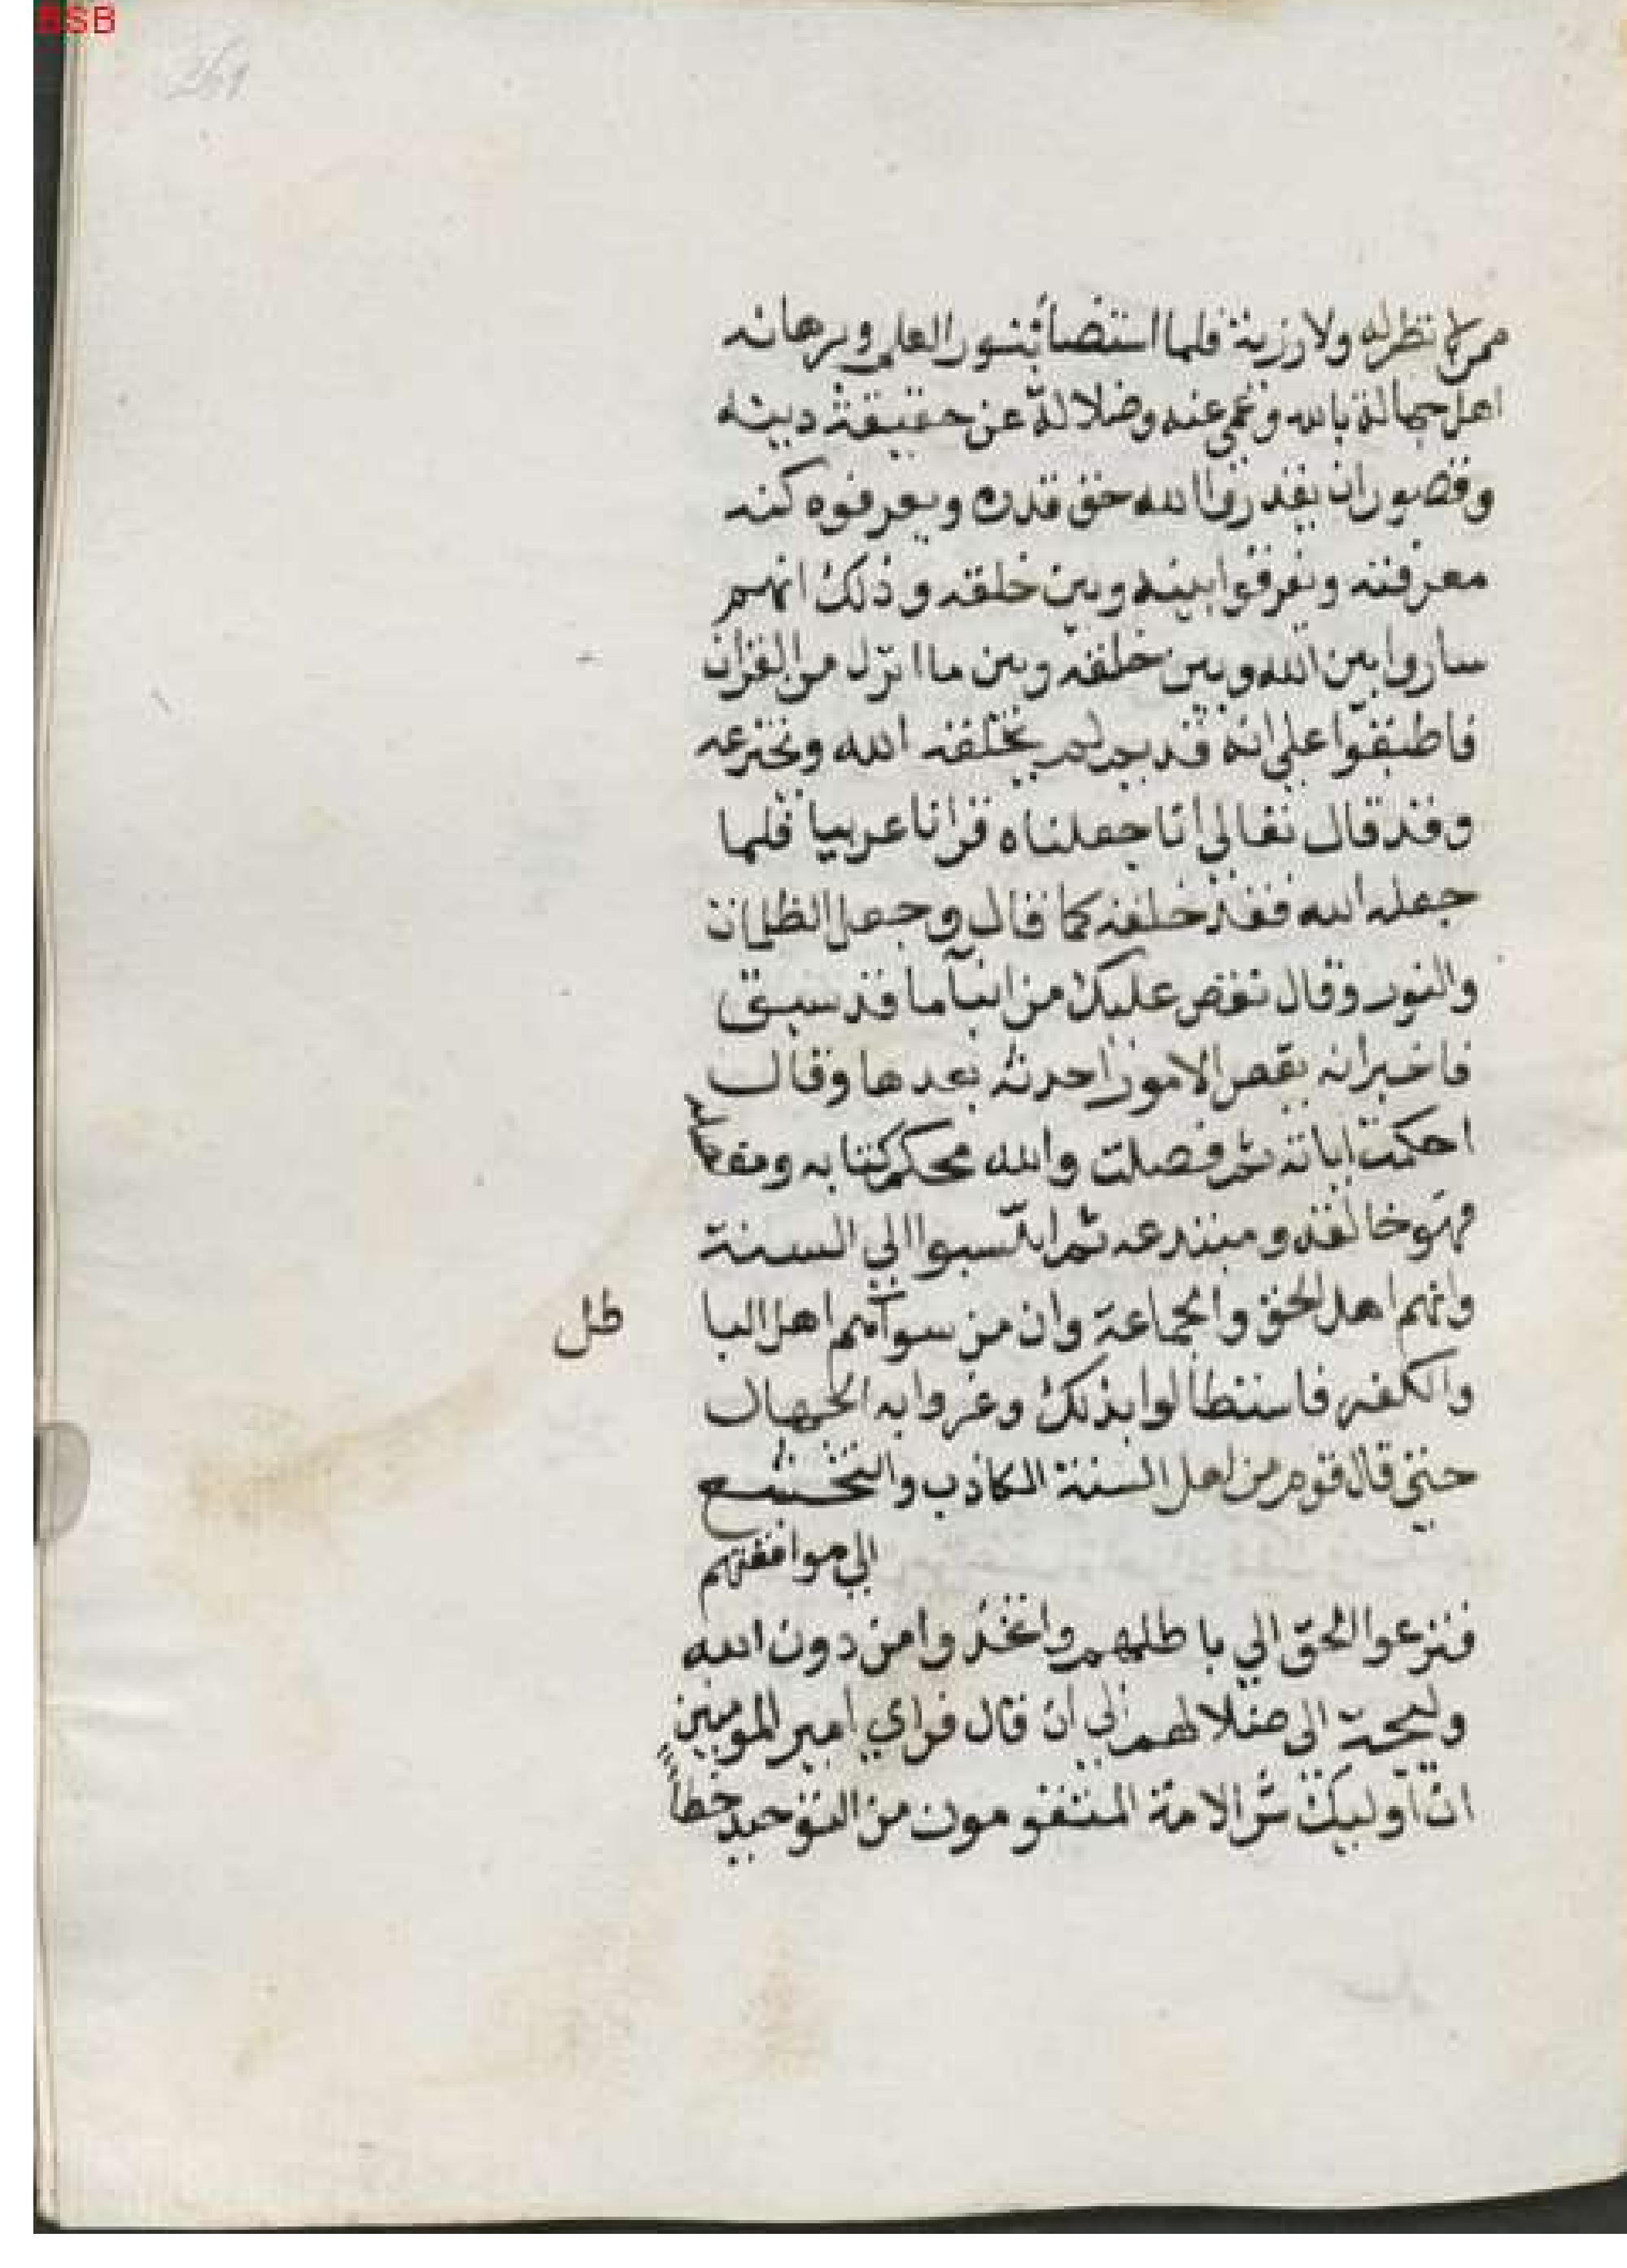 BSB
261
ممن لا نظر له ولا رزية فلما استضا بنور العلم وبرهانه
اهل جهالة بالله وعمي عنه وضلالة عن حقيقة دينه
وقصور ان يقدروا الله حق قدره ويعرفوه كنه
معرفته ويفرقوا بينه وبين خلقه وذلك انهم
ساروا بين الله وبين خلقه وبين ما انزل من القران
فاطبقوا علي انه قديم لم يخلقه الله ويخترعه
وقد قال تعالي انا جعلناه قرانا عربيا فلما
جعله الله فقد خلقه كما قال وجعل الظلمات
والنور وقال نقص عليك من انبآ ما قد سبق
فاخبر انه يقص الامور احدثه بعدها وقال
احكمت اياته ثم فصلت والله محكم كتابه ومفصله
فهو خالقه ومبتدعه ثم انتسبوا الي السنة
وانهم اهل الحق والجماعة وان من سوآهم اهل البا
طل
والكفر فاستطالوا بذلك وغروا به الجهال
حتي قال قوم من اهل السنة الكاذب والتخشع
الي موافقتهم
فنزعوا الحق الي باطلهم واتخذوا من دون الله
وليجة الي ضلالهم الي ان قال فراي امير المومنين
ان اوليك شر الامة المنتقومون من التوحيد خطأ